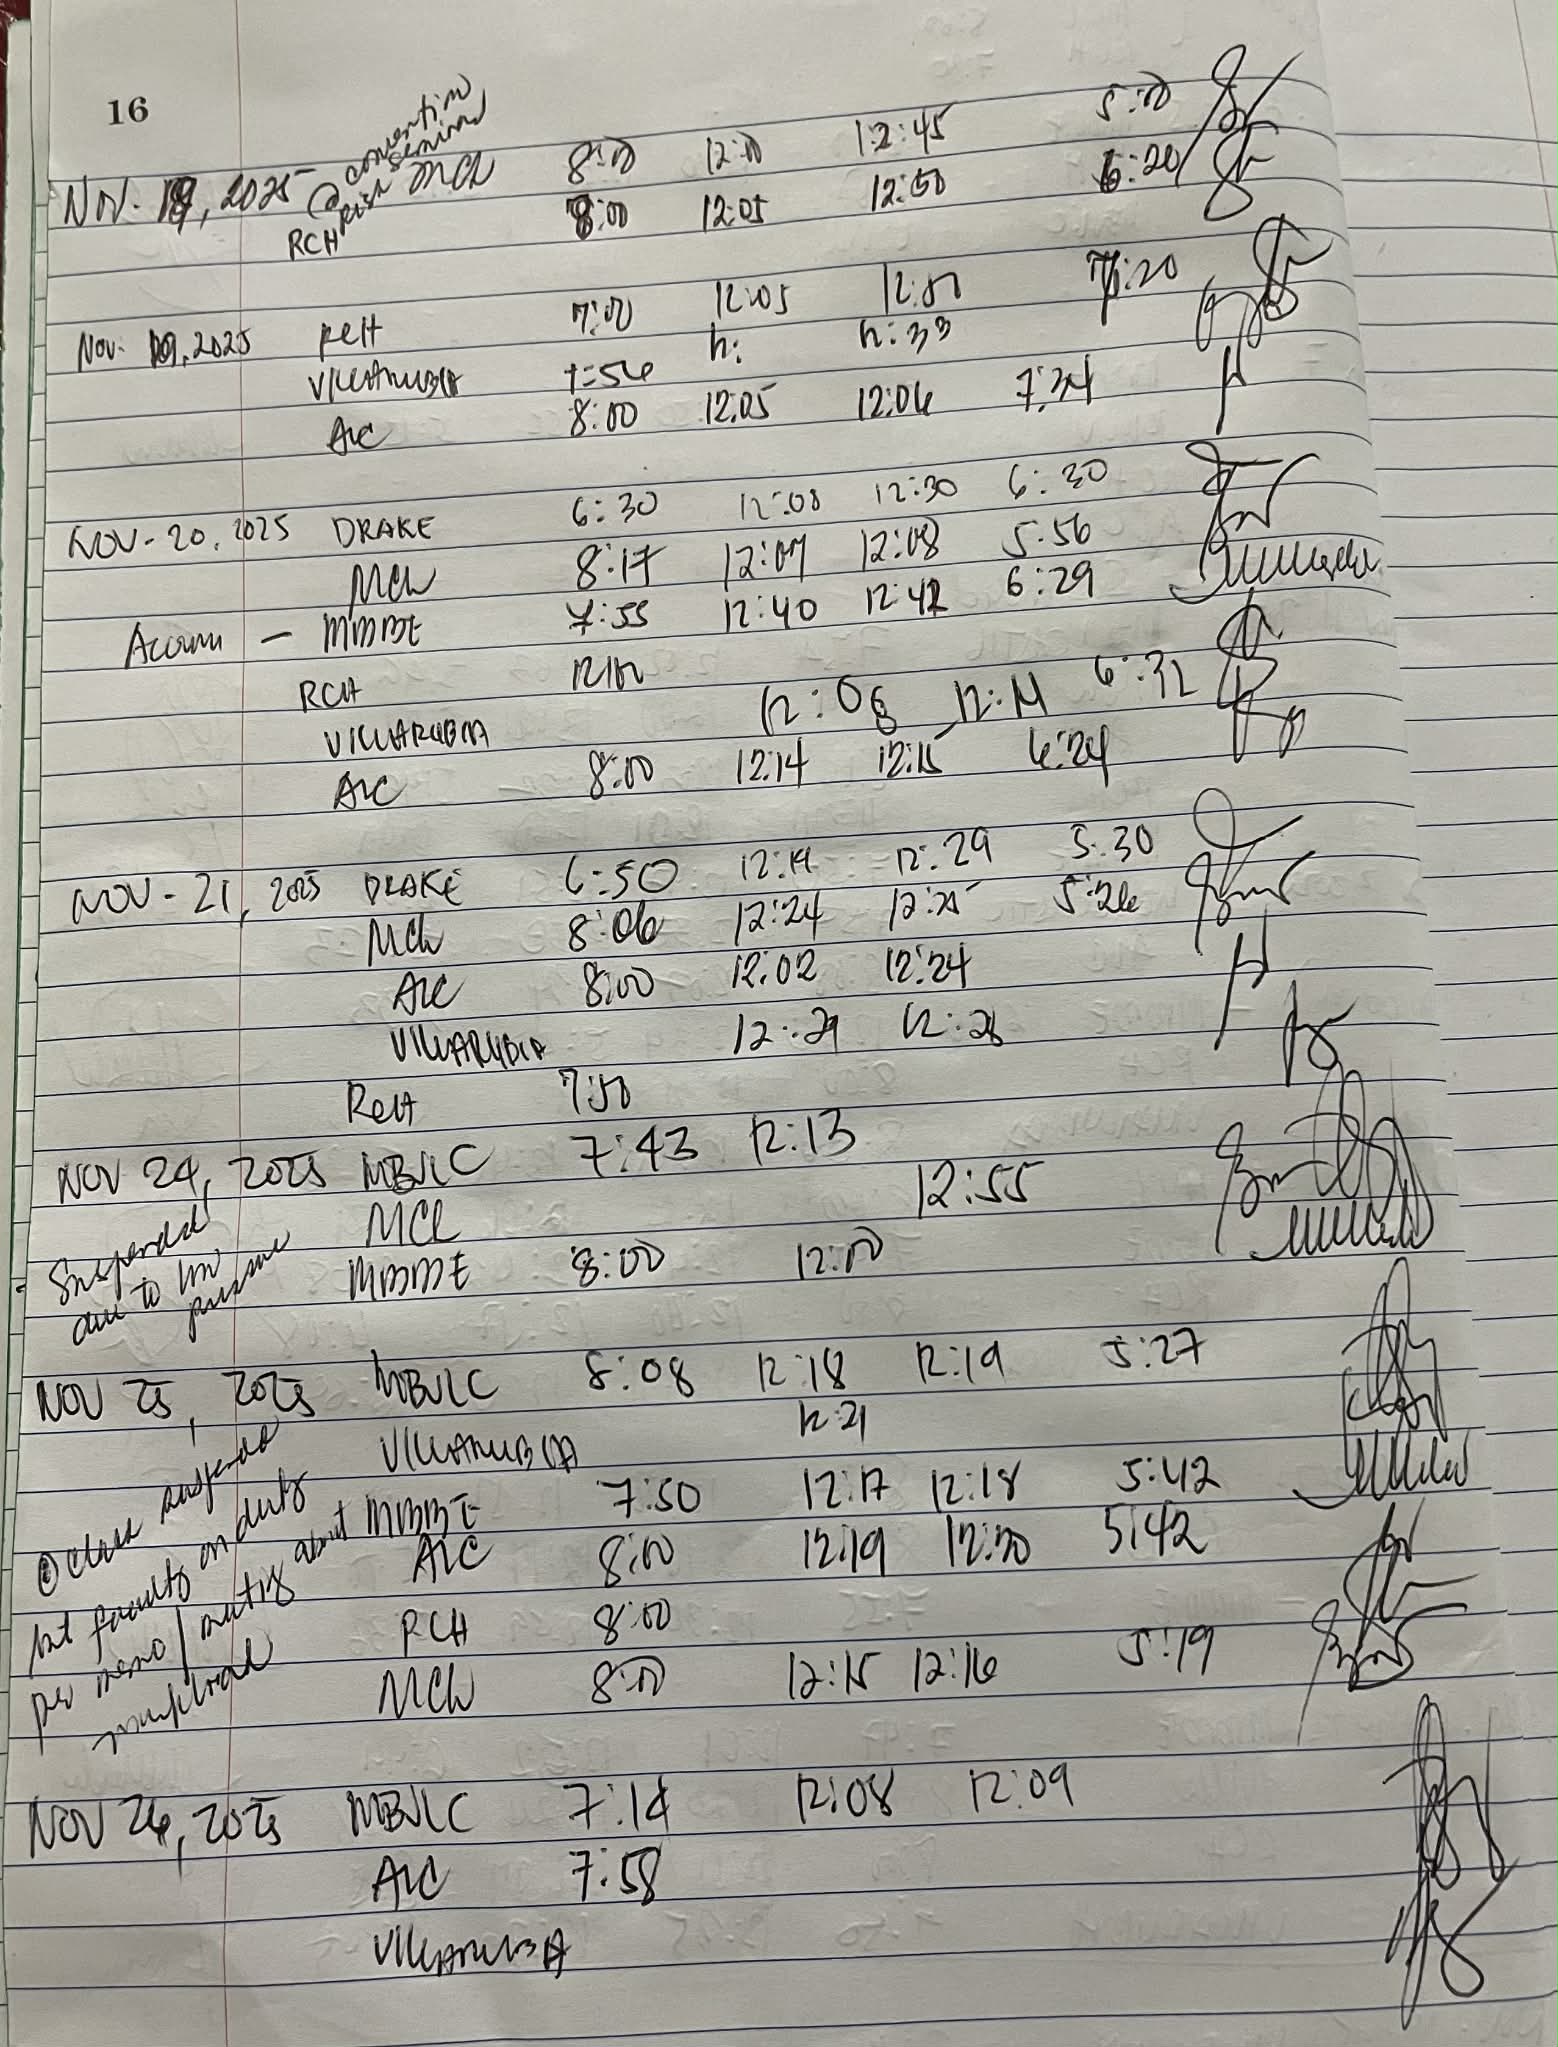 16
NOV. 18, 2025 @ convention MCL 8:00 12:00 12:45 5:00
RCH 8:00 12:05 12:50 6:20
Nov. 19, 2025 RCH 7:00 12:05 12:50 7:20
VILLARUBIA 7:56 12: 12:33
ALC 8:00 12:05 12:06 7:34
NOV - 20, 2025 DRAKE 6:30 12:08 12:30 6:30
MCL 8:17 12:07 12:08 5:56
MMBE 7:55 12:40 12:42 6:29
RCH
VILLARUBIA 12:08 12:11 6:32
ALC 8:00 12:14 12:15 6:24
NOV - 21, 2025 DRAKE 6:50 12:14 12:29 5:30
MCL 8:06 12:24 12:25 5:26
ALC 8:00 12:02 12:24
VILLARUBIA 12:27 12:28
RCH 7:50
NOV 24, 2025 MBJLC 7:43 12:13
MCL 12:55
Suspended due to low pressure
MMBE 8:00 12:00
NOV 25, 2025 MBJLC 8:08 12:18 12:19 5:27
VILLARUBIA 12:21
class suspended but faculty on duty per memo / meeting about
MMBE 7:50 12:17 12:18 5:42
ALC 8:00 12:19 12:20 5:42
RCH 8:00
MCL 8:00 12:15 12:16 5:19
NOV 26, 2025 MBJLC 7:14 12:08 12:09
ALC 7:58
VILLARUBIA